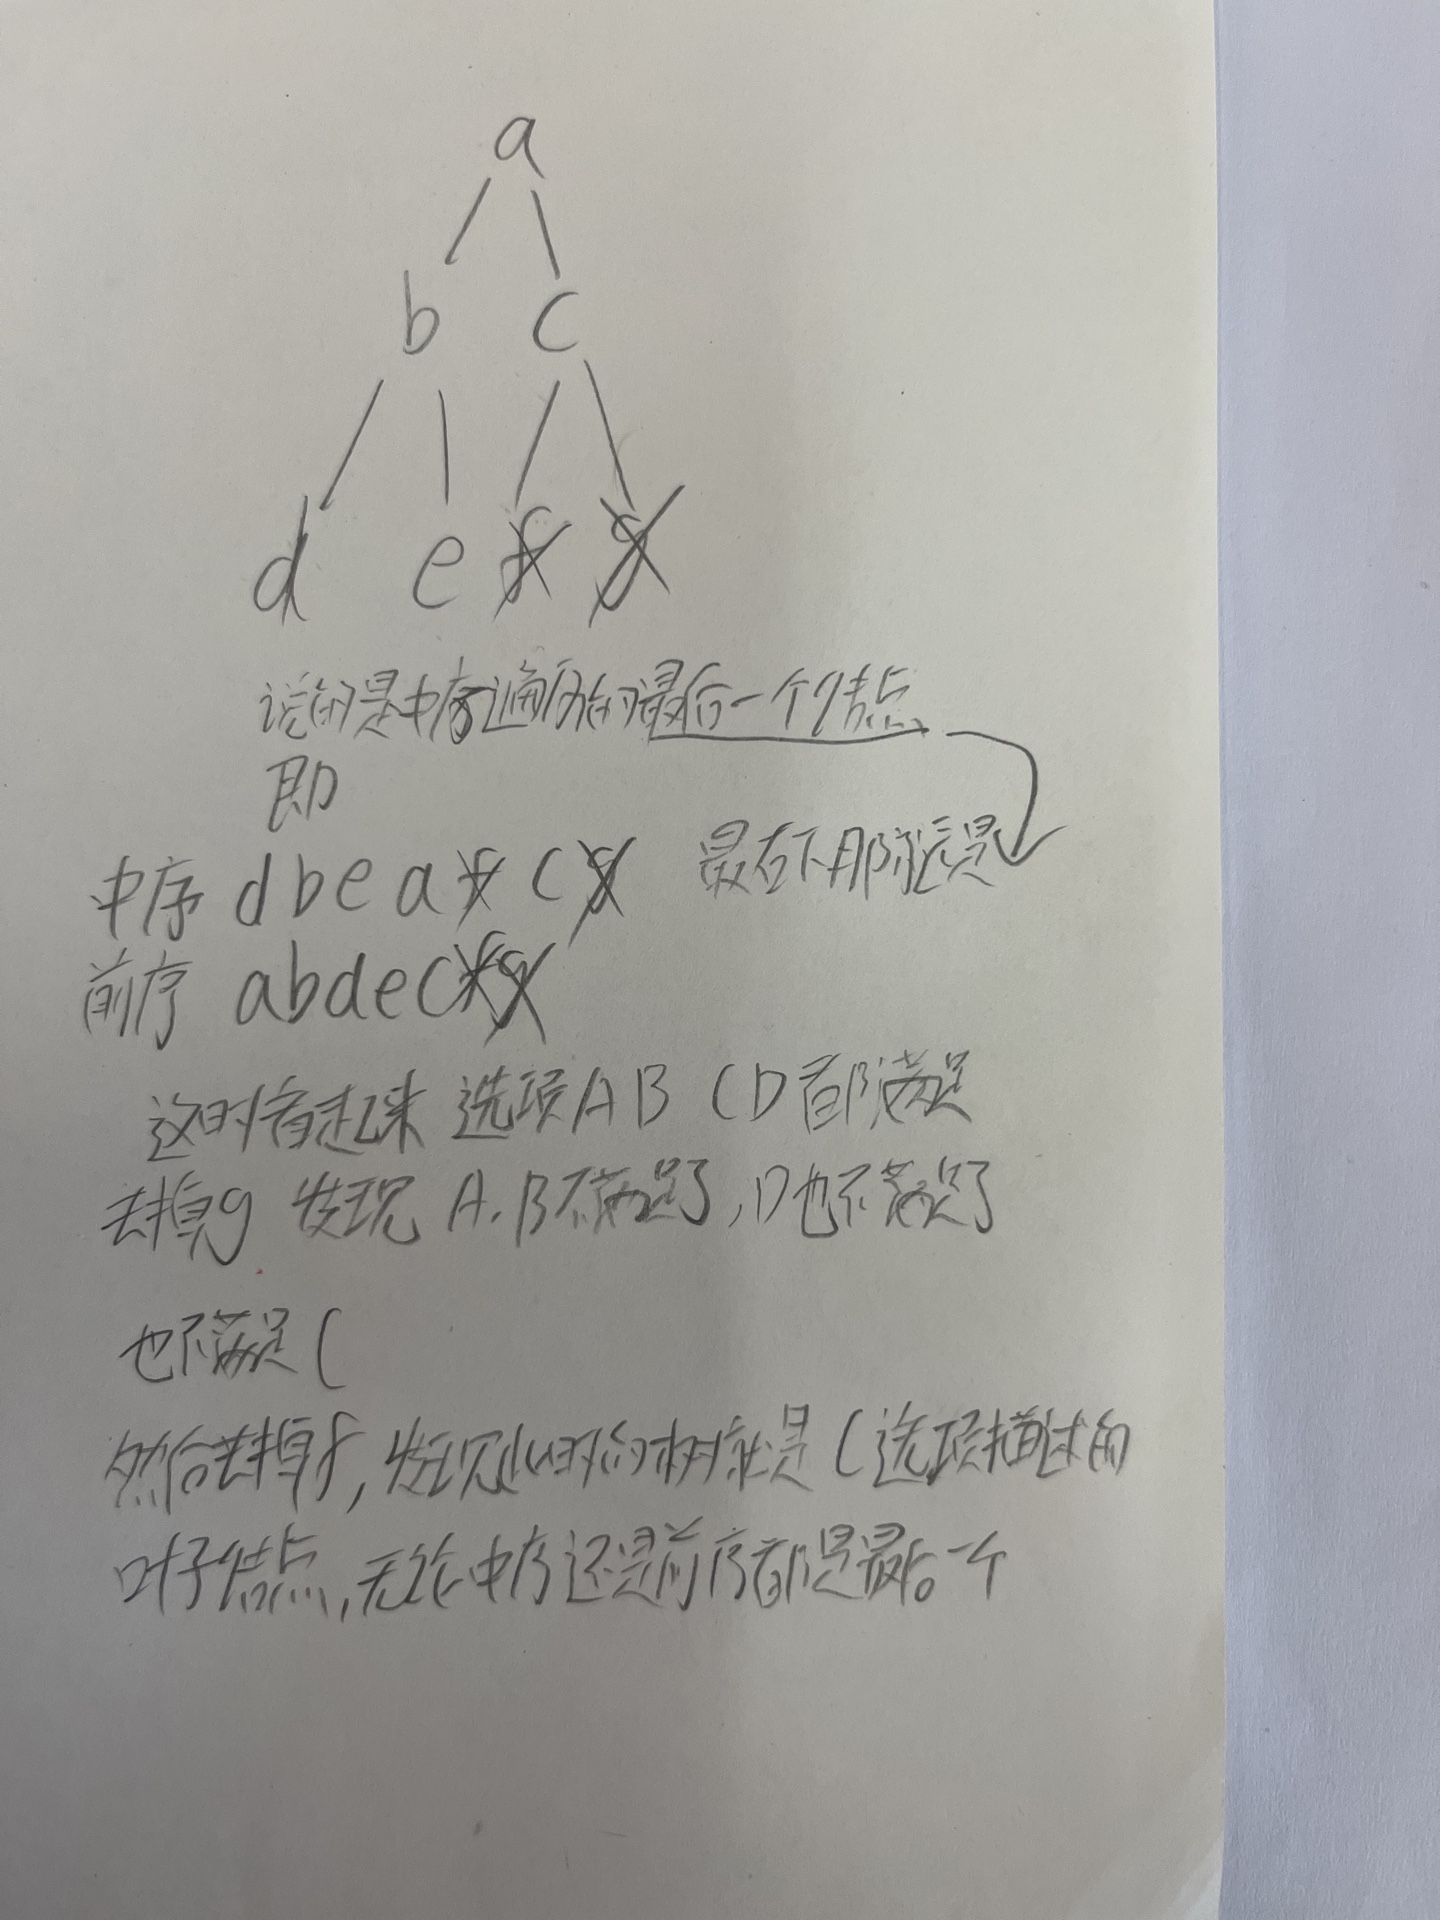 a
b c
d e f g
说的是中序遍历的最后一个结点
即
中序 d b e a f c g 最右下那就是
前序 a b d e c f g
这时看起来 选项A B C D都满足
去掉g 发现 A.B不满足了,D也不满足了
也不满足C
然后去掉f,发现此时的树就是C选项描述的
叶子结点,无论中序还是前序都是最后一个